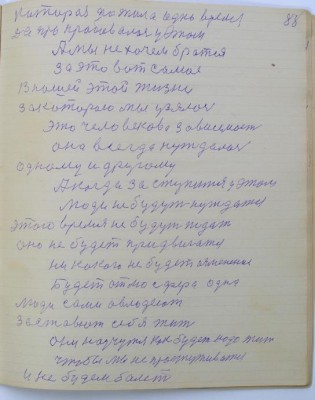 которая до тила одно время
88
за про просовался у этом
А мы не хочем братся
За это вот самое
В нашей этой жизни
За которою мы узялся
Это человеково зависимост
она всегда нуждался
одному и другому
А когда заступится у этом
Люди не будут нуждатся
этого время не будут ждат
оно не будет придвигатся
ни какого не будет изменения
Будет атмосфера одна
Люди сами овладеют
Заставют себя жит
Они научутся как будет надо жит
чтобы мы не простуживалися
и не будем болет